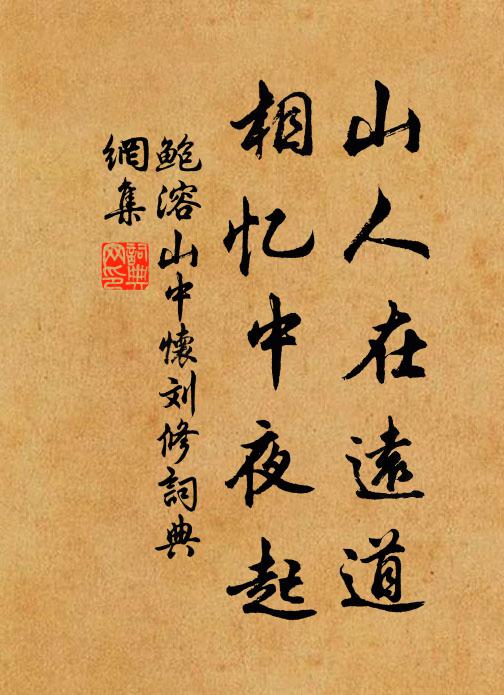 山人在遠道
相忆中夜起
鲍溶山中懷刘修詞典
網集
詞典
网印